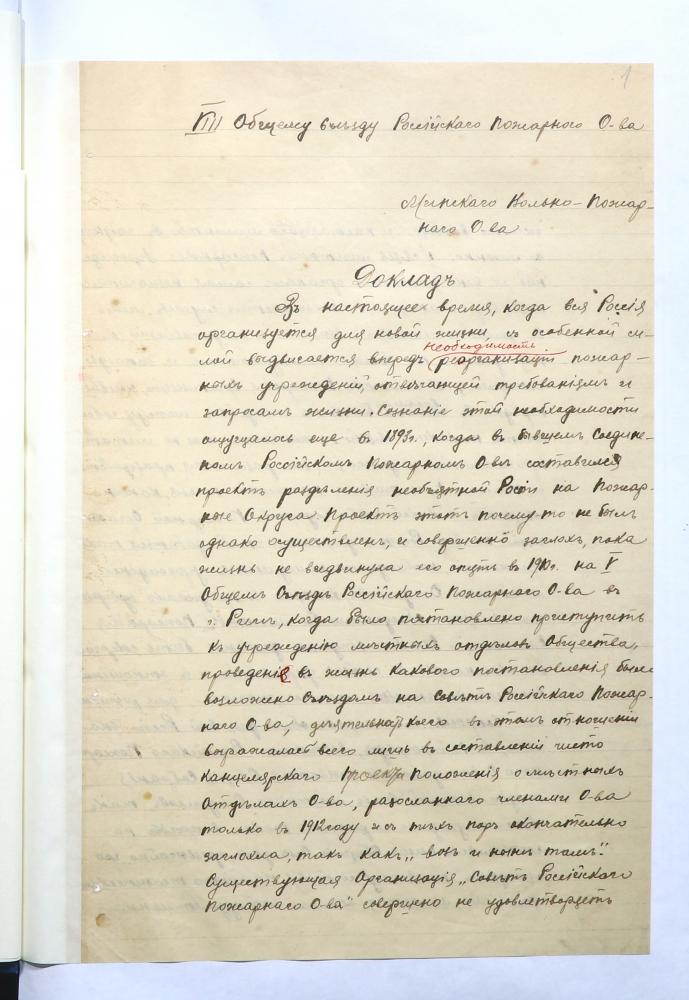 1
VIII Общему съѣзду Россійскаго Пожарнаго О-ва
Минскаго Вольно-Пожар-
наго О-ва
Докладъ
Въ настоящее время, когда вся Россія
организуется для новой жизни, съ особенной си-
лой выдвигается впередъ необходимость реорганизаціи пожар-
ныхъ учрежденій, отвѣчающей требованіямъ и
запросамъ жизни. Сознаніе этой необходимости
ощущалось еще в 1893г., когда в бывшемъ Соедине-
номъ Россійскомъ Пожарномъ О-вѣ составился
проектъ раздѣленія необъятной Росіи на Пожар-
ные Округа. Проектъ этотъ почему-то не былъ
однако осуществленъ, и совершенно заглохъ, пока
жизнь не выдвинула его опять въ 1910г. на V
Общемъ Съѣздѣ Россійскаго Пожарного О-ва въ
г. Ригѣ, когда было постановлено приступить
къ учрежденію мѣстныхъ отдѣловъ Общества,
проведеніе въ жизнь какового постановленія было
возложено Съѣздомъ на Совѣтъ Россійскаго Пожар-
наго О-ва, дѣятельность коего въ этомъ отношеніи
выражалась всего лишь въ составленіи чисто
канцелярскаго проекта положенія о мѣстныхъ
отдѣлахъ О-ва, разосланнаго членамъ О-ва
только въ 1912 году и съ тѣхъ поръ окончательно
заглохла, такъ какъ „возъ и нынѣ тамъ".
Существующая Организація „Совѣтъ Россійскаго
Пожарнаго О-ва" совершено не удовлетворяетъ